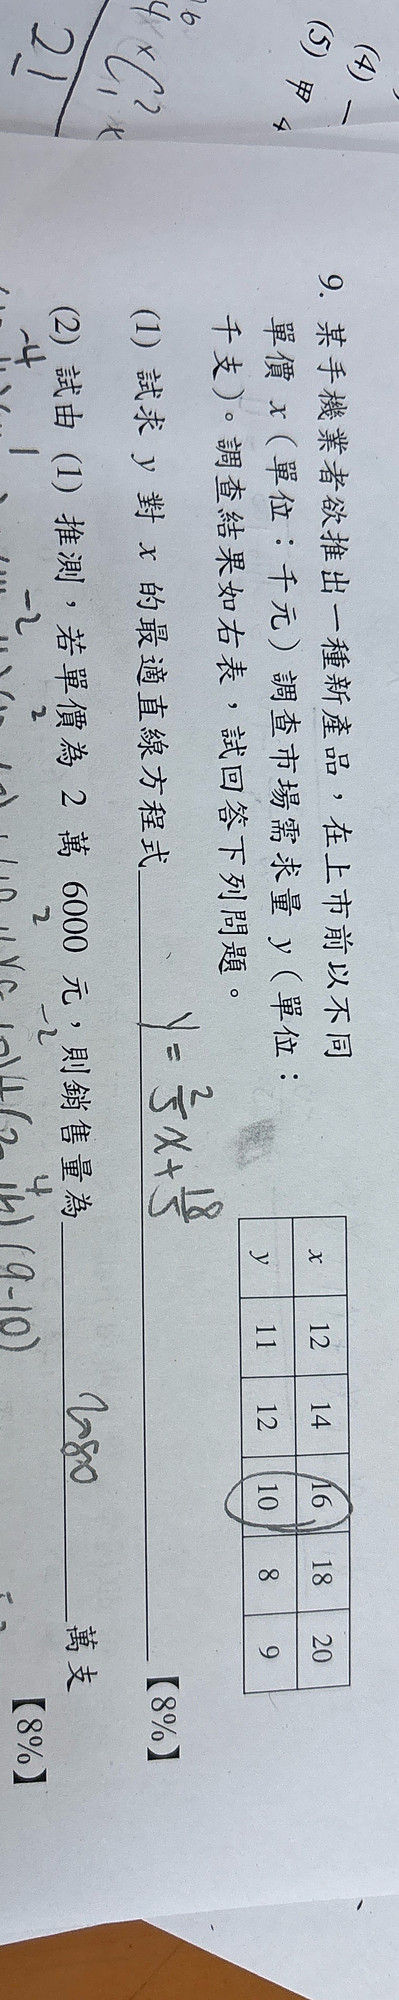 (4) 一
(5) 甲
21
9. 某手機業者欲推出一種新產品，在上市前以不同
單價 x（單位：千元）調查市場需求量 y（單位：
千支）。調查結果如右表，試回答下列問題。
x 12 14 16 18 20
y 11 12 10 8 9
(1) 試求 y 對 x 的最適直線方程式 y = 2/5 x + 18/5 【8%】
(2) 試由 (1) 推測，若單價為 2 萬 6000 元，則銷售量為 萬支
【8%】
-4 -2 2 2 -2 4
(9-10)